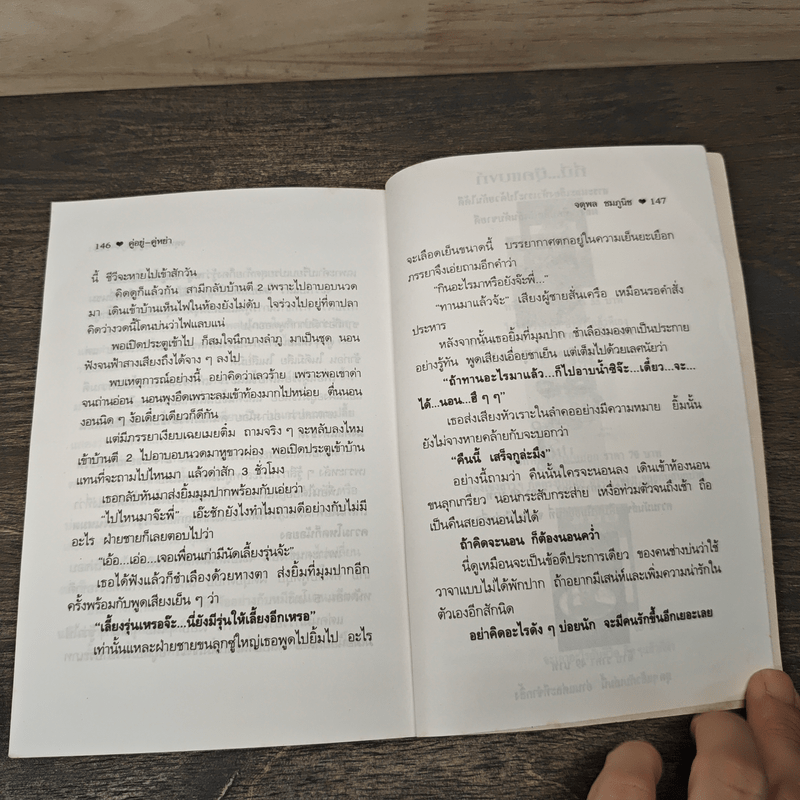 146 ♥ คู่อยู่-คู่หย่า
นี้ ชีวีจะหายไปเข้าสักวัน
คิดดูก็แล้วกัน สามีกลับบ้านตี 2 เพราะไปอาบอบนวด
มา เดินเข้าบ้านเห็นไฟในห้องยังไม่ดับ ใจร่วงไปอยู่ที่ตาปลา
คิดว่างวดนี้โดนบ่นว่าไฟแลบแน่
พอเปิดประตูเข้าไป ก็สมใจนึกบางลำภู มาเป็นชุด นอน
ฟังจนฟ้าสางเสียงถึงได้จาง ๆ ลงไป
พบเหตุการณ์อย่างนี้ อย่าคิดว่าเลวร้าย เพราะพอเขาด่า
จนถ่านอ่อน นอนพุงอืดเพราะลมเข้าท้องมากไปหน่อย ตื่นนอน
งอนนิด ๆ ง้อเดี๋ยวเดียวก็ดีกัน
แต่มีภรรยาเงียบเฉยเมยติ๋ม ถามจริง ๆ จะหลับลงไหม
เข้าบ้านตี 2 ไปอาบอบนวดมาหูขาวผ่อง พอเปิดประตูเข้าบ้าน
แทนที่จะถามไปไหนมา แล้วด่าสัก 3 ชั่วโมง
เธอกลับหันมาส่งยิ้มมุมปากพร้อมกับเอ่ยว่า
“ไปไหนมาจ๊ะพี่” เอ๊ะชักยังไงทำไมถามดีอย่างกับไม่มี
อะไร ฝ่ายชายก็เลยตอบไปว่า
“เอ้อ...เอ่อ...เจอเพื่อนเก่ามีนัดเลี้ยงรุ่นจ้ะ”
เธอได้ฟังแล้วก็ชำเลืองด้วยหางตา ส่งยิ้มที่มุมปากอีก
ครั้งพร้อมกับพูดเสียงเย็น ๆ ว่า
“เลี้ยงรุ่นเหรอจ๊ะ...นี่ยังมีรุ่นให้เลี้ยงอีกเหรอ”
เท่านั้นแหละฝ่ายชายขนลุกซู่ใหญ่เธอพูดไปยิ้มไป อะไร
จตุพล ชมภูนิช ♥ 147
จะเลือดเย็นขนาดนี้ บรรยากาศตกอยู่ในความเย็นยะเยือก
ภรรยาจึงเอ่ยถามอีกคำว่า
“กินอะไรมาหรือยังจ๊ะพี่...”
“ทานมาแล้วจ้ะ” เสียงผู้ชายสั่นเครือ เหมือนรอคำสั่ง
ประหาร
หลังจากนั้นเธอยิ้มที่มุมปาก ชำเลืองมองตาเป็นประกาย
อย่างรู้ทัน พูดเสียงเอื่อยชาเย็น แต่เต็มไปด้วยเลศนัยว่า
“ถ้าทานอะไรมาแล้ว...ก็ไปอาบน้ำซิจ๊ะ...เดี๋ยว...จะ...
ได้...นอน...ฮึ ๆ ๆ”
เธอส่งเสียงหัวเราะในลำคออย่างมีความหมาย ยิ้มนั้น
ยังไม่จางหายคล้ายกับจะบอกว่า
“คืนนี้ เสร็จกูล่ะมึง”
อย่างนี้ถามว่า คืนนั้นใครจะนอนลง เดินเข้าห้องนอน
ขนลุกเกรียว นอนกระสับกระส่าย เหงื่อท่วมตัวจนถึงเช้า ถือ
เป็นคืนสยองนอนไม่ได้
ถ้าคิดจะนอน ก็ต้องนอนคว่ำ
นี่ดูเหมือนจะเป็นข้อดีประการเดียว ของคนช่างบ่นว่าใช้
วาจาแบบไม่ได้พักปาก ถ้าอยากมีเสน่ห์และเพิ่มความน่ารักใน
ตัวเองอีกสักนิด
อย่าคิดอะไรดัง ๆ บ่อยนัก จะมีคนรักขึ้นอีกเยอะเลย